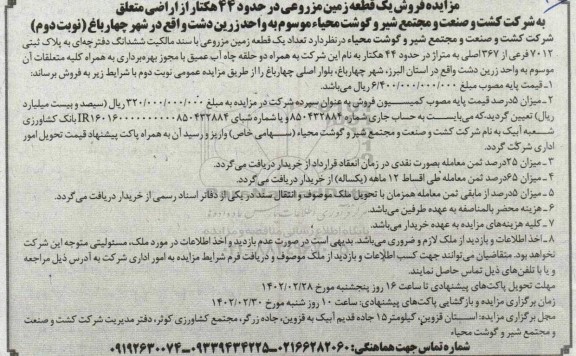 مزایده فروش یک قطعه زمین مزروعی در حدود ۴۴ هکتار از اراضی متعلق
به شرکت کشت و صنعت و مجتمع شیر و گوشت محیاء موسوم به واحد زرین دشت واقع در شهر چهارباغ (نوبت دوم)
شرکت کشت و صنعت و مجتمع شیر و گوشت محیاء در نظر دارد تعداد یک قطعه زمین مزروعی با سند مالکیت ششدانگ دفترچه‌ای به پلاک ثبتی
۷۰۱۲ فرعی از ۳۶۷ اصلی به متراژ در حدود ۴۴ هکتار به نام این شرکت به همراه دو حلقه چاه آب عمیق با مجوز بهره‌برداری به همراه کلیه متعلقات آن
موسوم به واحد زرین دشت واقع در استان البرز، شهر چهارباغ، بلوار اصلی چهارباغ را از طریق مزایده عمومی نوبت دوم با شرایط زیر به فروش برساند:
۱ـ قیمت پایه مصوب مبلغ ۶/۴۰۰/۰۰۰/۰۰۰/۰۰۰ ریال می‌باشد.
۲ـ میزان ۵درصد قیمت پایه مصوب کمیسیون فروش به عنوان سپرده شرکت در مزایده به مبلغ ۳۲۰/۰۰۰/۰۰۰/۰۰۰ ریال (سیصد و بیست میلیارد
ریال) تعیین گردید،که می‌بایست به حساب جاری شماره ۸۵۰۴۳۲۸۸۴ و یا شماره شبای IR۱۶۰۱۶۰۰۰۰۰۰۰۰۰۸۵۰۴۳۲۸۸۴ بانک کشاورزی
شعبه آبیک به نام شرکت کشت و صنعت و مجتمع شیر و گوشت محیاء (سهامی خاص) واریز و رسید آن به همراه پاکت پیشنهاد قیمت تحویل امور
اداری شرکت گردد.
۳ـ میزان ۲۵درصد ثمن معامله بصورت نقدی در زمان انعقاد قرارداد از خریدار دریافت می‌گردد.
۴ـ میزان ۶۵درصد ثمن معامله طی اقساط ۱۲ ماهه (یکساله) از خریدار دریافت می‌گردد.
۵ـ میزان ۵درصد از مابقی ثمن معامله همزمان با تحویل ملک موصوف و انتقال سند در یکی از دفاتر اسناد رسمی از خریدار دریافت می‌گردد.
۶ـ هزینه محضر بالمناصفه به عهده طرفین می‌باشد.
۷ـ کلیه هزینه‌های مزایده به عهده خریدار می‌باشد.
۸ـ اخذ اطلاعات و بازدید از ملک لازم و ضروری می‌باشد. بدیهی است در صورت عدم بازدید و اخذ اطلاعات در مورد ملک، مسئولیتی متوجه این شرکت
نخواهد بود. متقاضیان می‌توانند جهت کسب اطلاعات و بازدید از ملک موصوف و دریافت فرم شرایط مزایده به امور اداری شرکت به آدرس ذیل مراجعه
و یا با تلفن‌های ذیل تماس حاصل نمایند.
مهلت تحویل پاکت‌های پیشنهادی: تا ساعت ۱۶ روز پنجشنبه مورخ ۱۴۰۲/۰۲/۲۸
زمان برگزاری مزایده و بازگشایی پاکت‌های پیشنهادی: ساعت ۱۰ روز شنبه مورخ ۱۴۰۲/۰۲/۳۰
محل برگزاری مزایده: استان قزوین، کیلومتر ۱۵ جاده قدیم آبیک به قزوین، جاده زرگر، مجتمع کشاورزی کوثر، دفتر مدیریت شرکت کشت و صنعت
و مجتمع شیر و گوشت محیاء
شماره تماس جهت هماهنگی: ۰۲۱۶۶۲۸۲۰۶۰ـ۰۹۳۳۹۴۳۴۲۲۵ـ۰۹۱۹۲۶۳۰۰۷۴